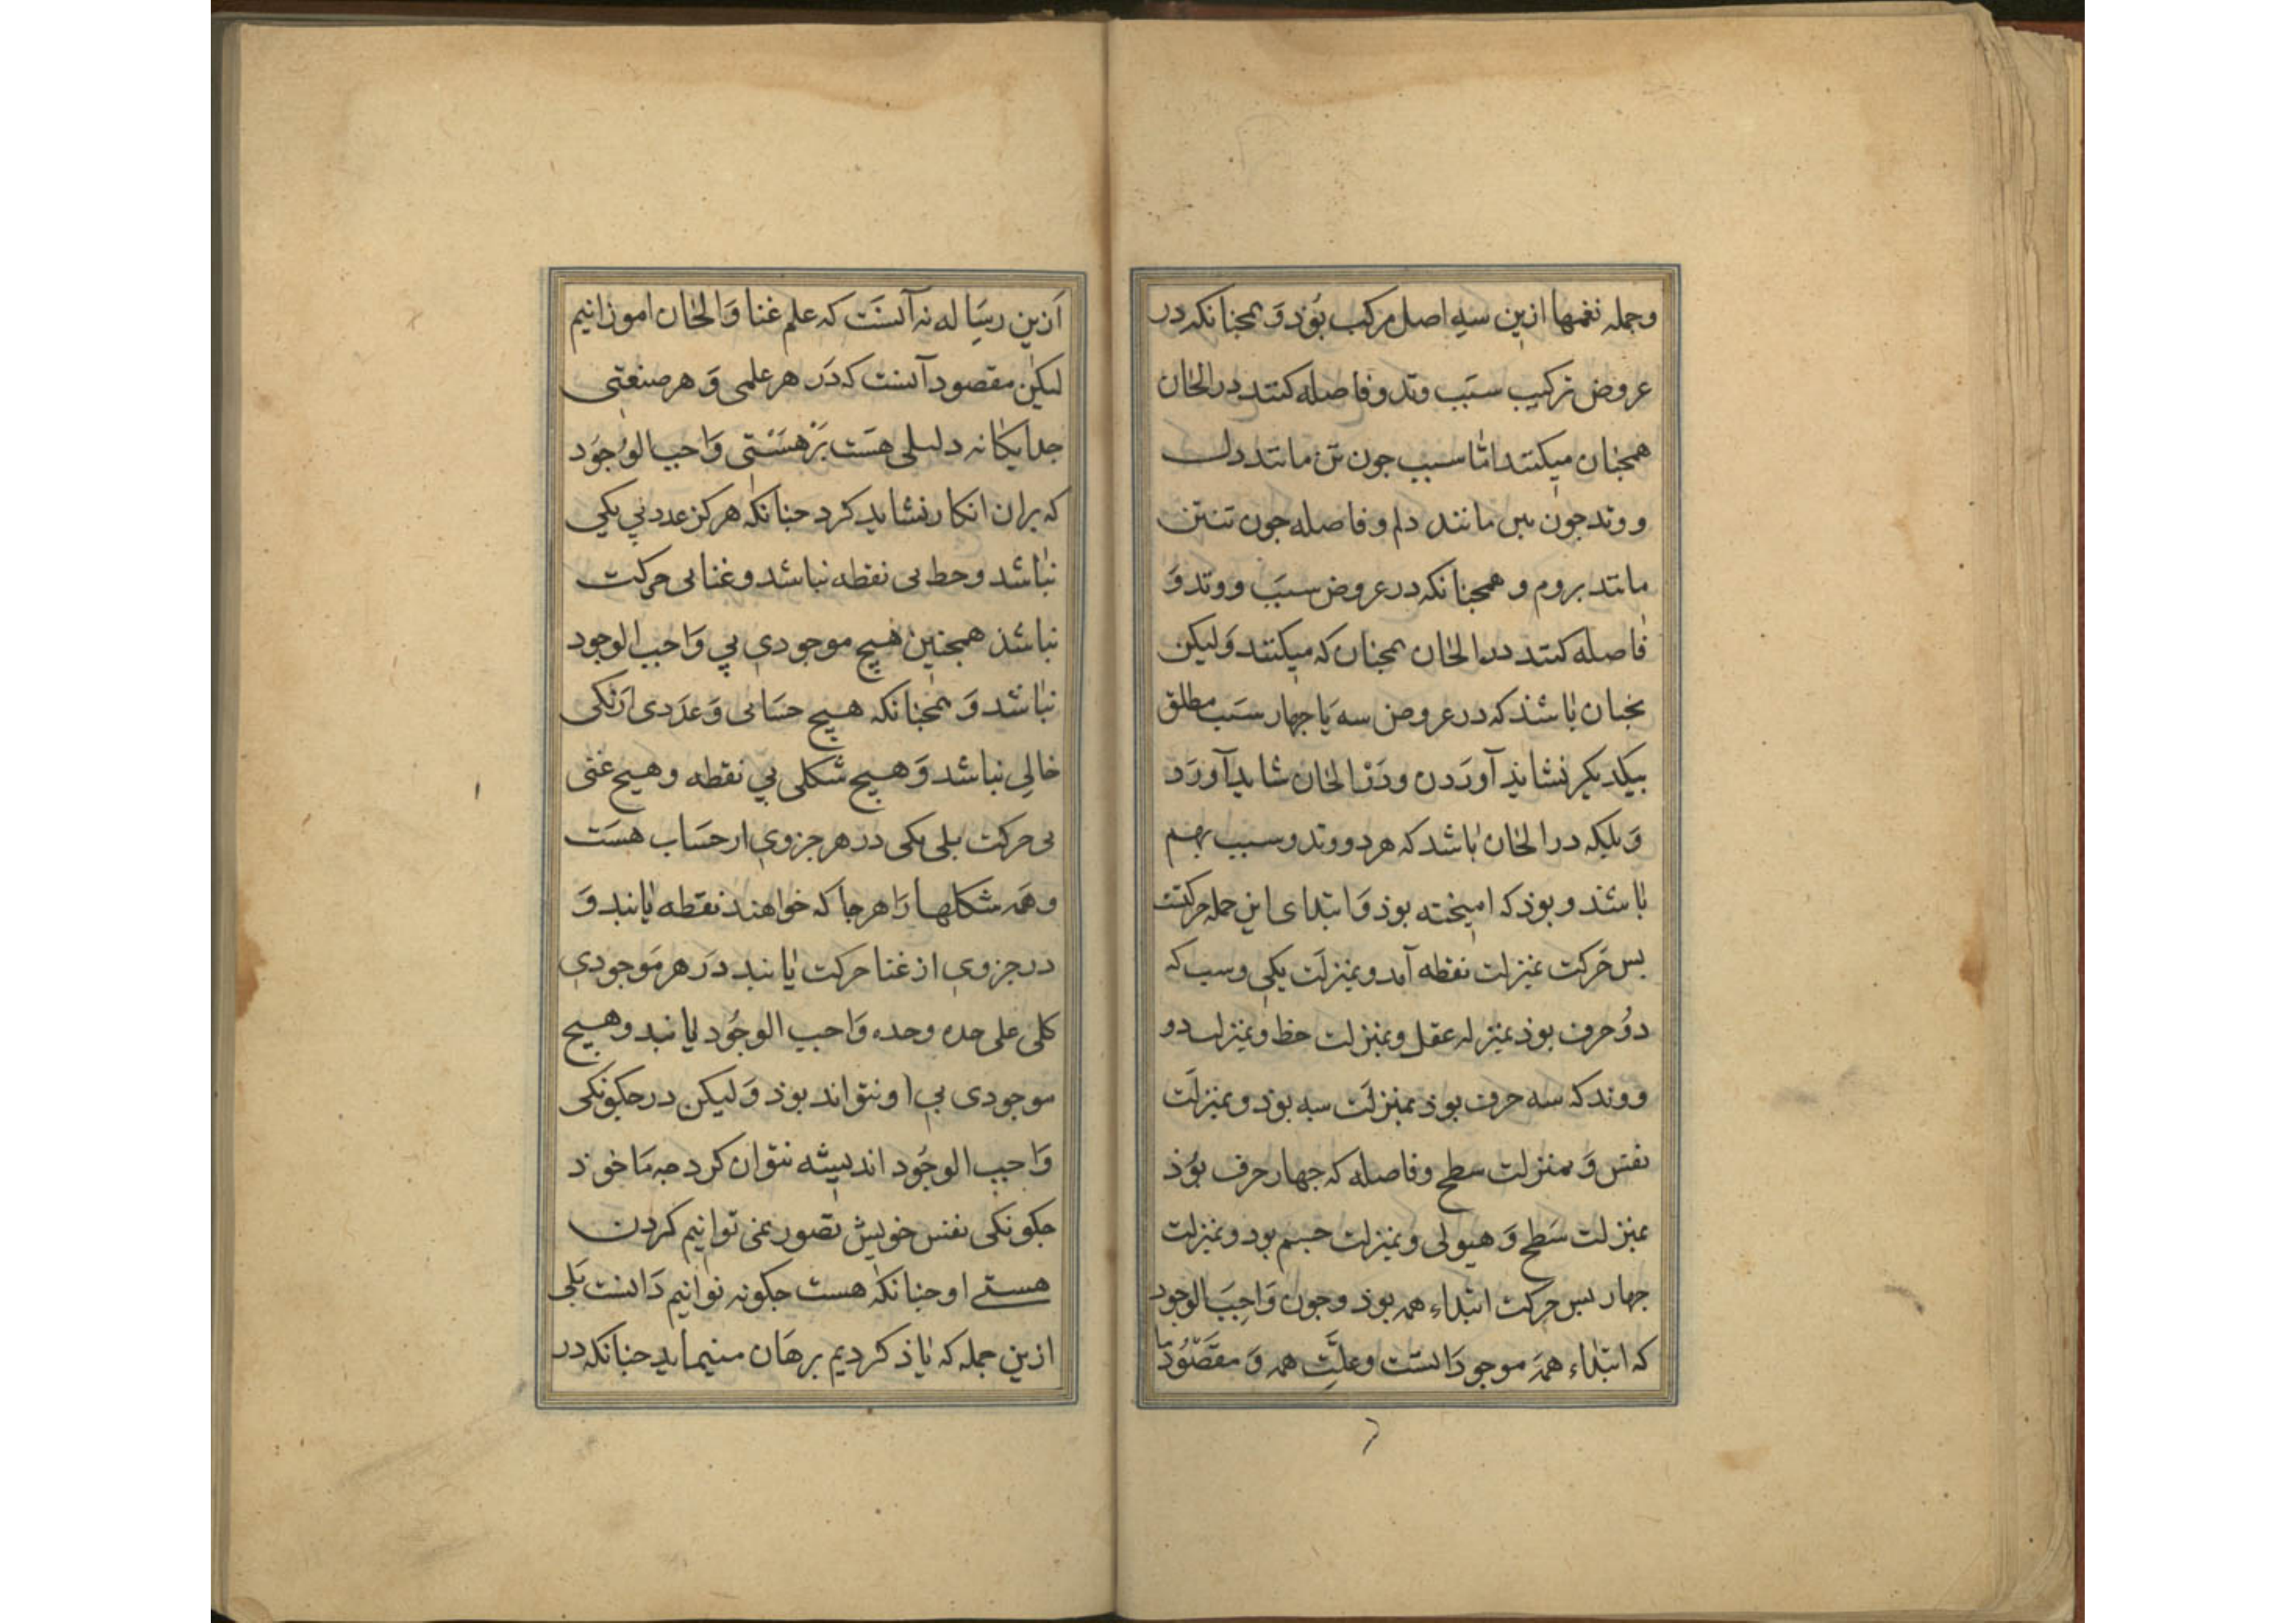 وجمله نغمها ازین سه اصل مرکب بُوذ وَ همجنانکه در
عروض ترکیب سبَب وتد و فاصله کنند در الحان
همجنان میکنند امّا سبب جون تن مانند دل
و وتد جون مانند دلم و فاصله جون تنتن
مانند بروم و همجنانکه در عروض سبَب و وتد وَ
فاصله کنند در الحان همجنان که میکنند وَلیکن
بجنان باشذ که در عروض سه یَا جهار سبَب مطلق
بیکدیکر نشایذ آورَدن ودَر الحان شاید آورَد
وَبلکه در الحان باشد که هر دو وتد و سبب بهم
باشند و بوذ که امیخته بوذ وَ ابتدای این جمله حرکتست
بس حَرکت بمنزلت نقطه آمد و بمنزلَت یکی و سبب که
دوُ حرف بوذ بمنزله عقل و بمنزلت خط و بمنزلت دو
و وتد که سه حرف بوذ بمنزلَت سه بوذ و بمنزلَت
نفس وَ بمنزلت سطح و فاصله که جهار حرف بُوذ
بمنزلت سَطح وَ هیولی و بمنزلت جسم بود و بمنزلت
جهار بس حرکت ابتداء همه بوذ و جون وَاجِبَ الوجود
که ابتداء همهَ موجودَاتست وعلّت همه وَ مقصُود ما
اَزین رسَاله نه آنسَت که علم غنا وَ الحان اموزانیم
لیکن مقصود آنست که دَر هر علمی وَ هر صنعتی
جدایکانه دلیلی هسَت بَرْ هَسْتی وَاجب الوُجوَد
که بران انکار نشاید کرد جنانکه هرکز عدد بی یکی
نباشد و خط بی نقطه نباشد و غنا بی حرکت
نباشذ همجنین هیج موجودی بی وَاجب الوجود
نباشد وَ همجنانکه هیج حسَابی وَ عدَدی ازیکی
خالی نباشد وَ هیج شکلی بی نقطه و هیج غنی
بی حرکت بلی یکی در هر جزوی از حسَاب هسَت
و همه شکلها رَا هر جا که خواهند نقطه یابند وَ
در جزوی از غنا حرکت یابند دَر هر مَوجودی
کلی علی حده وحده وَاجب الوجُود یابند و هیج
موجودی بی او نتواند بوذ وَلیکن در جکونکی
وَاجب الوجُود اندیشه نتوان کرد جه مَا خوذ
جکونکی نفس خویش تصور نمی توانیم کردن
هستی او جنانکه هست جکونه توانیم دَانست بَلی
ازین جمله که یاذ کردیم برهَان مینماید جنانکه در